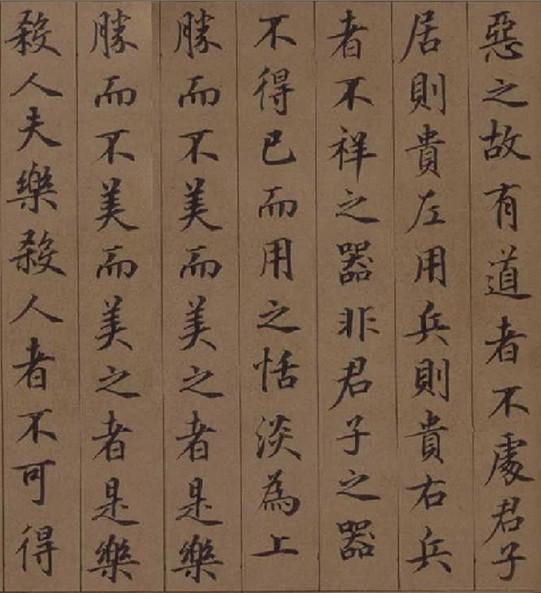 惡之故有道者不處君子
居則貴左用兵則貴右兵
者不祥之器非君子之器
不得已而用之恬淡為上
勝而不美而美之者是樂
勝而不美而美之者是樂
殺人夫樂殺人者不可得